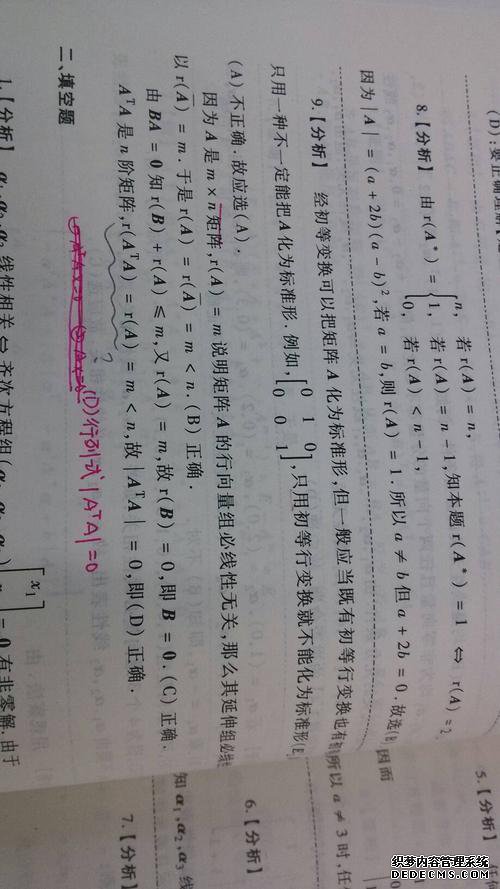 (D):要正确理解
8.【分析】 由 r(A*) = { n, 若 r(A) = n,
1, 若 r(A) = n - 1, 知本题 r(A*) = 1 ⇔ r(A) = 2
0, 若 r(A) < n - 1,
因为 | A | = (a + 2b)(a - b)², 若 a = b, 则 r(A) = 1. 所以 a ≠ b 但 a + 2b = 0. 故选(
9.【分析】 经初等变换可以把矩阵 A 化为标准形, 但一般应当既有初等行变换也有
只用一种不一定能把 A 化为标准形. 例如, [0 1 0
0 0 1], 只用初等行变换就不能化为标准形
(A) 不正确. 故应选(A).
因为 A 是 m × n 矩阵, r(A) = m 说明矩阵 A 的行向量组必线性无关, 那么其延伸组必线
以 r(Ā) = m. 于是 r(A) = r(Ā) = m < n. (B) 正确.
由 BA = 0 知 r(B) + r(A) ≤ m, 又 r(A) = m, 故 r(B) = 0, 即 B = 0. (C) 正确.
AᵀA 是 n 阶矩阵, r(AᵀA) = r(A) = m < n, 故 | AᵀA | = 0, 即 (D) 正确.
?
(D)行列式 |AᵀA| = 0
二、填空题
1.【分析】 α₁, α₂, α₃ 线性相关 ⇔ 齐次方程组 (α₁, α₂, α₃) [x₁
= 0 有非零解. 由于
5.【分析】
因而
所以 a ≠ 3 时, 任
6.【分析】
知 α₁, α₂, α₃ 线
7.【分析】
织梦内容管理系统
DEDECMS.COM